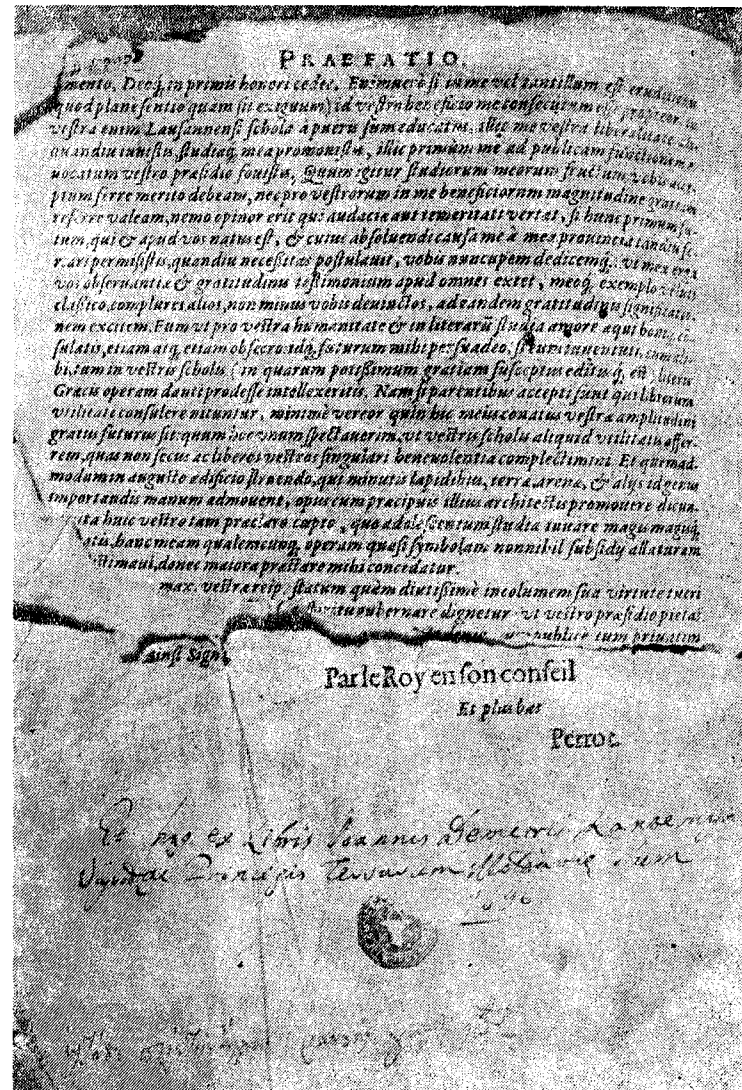 PRAEFATIO.
mento. Deoq́. in primis honori cedet. Enimuerò si in me vel tantillum est eruditionis
quod plane sentio quam sit exiguum) id vestro beneficio me consecutum
vestra enim Lausannensi schola à puero sum educatus, illic me vestra liberalitate
quandiu iuuistis, studiaq́; mea promouistis, illic primùm me ad publicam functionem
uocatum vestro præsidio fouistis, Quum igitur studiorum meorum fructum vobis acceptum
ptum ferre meritò debeam, nec pro vestrorum in me beneficiorum magnitudine gratiam
referre valeam, nemo opinor erit qui audaciæ aut temeritati vertat, si hunc primum fœ-
tum, qui & apud vos natus est, & cuius absoluendi causa me à mea prouincia tandiu
r. ari permisistis, quandiu necessitas postulauit, vobis nuncupem dedicemq́; vt mea erga
vos obseruantia & gratitudinis testimonium apud omnes extet, meoq́; exemplo velut
classico, complures alios, non minus vobis deuinctos, ad eandem gratitudinis significatio-
nem excitem. Eum vt pro vestra humanitate & in literarũ studia amore æqui boni con-
sulatis, etiam atq; etiam obsecro: idq́; futurum mihi persuadeo, si
bi, tum in vestris scholis (in quarum potissimum gratiam susceptus editusq́; est) literis
Græcis operam dantiprodesse intellexeritis. Nam si parentibus accepti sunt qui liberorum
vtilitate consulere nituntur, minimè vereor quin hic meus conatus vestræ amplitudini
gratus futurus sit: quum hoc vnum spectauerim, vt vestris scholis aliquid vtilitatis affer-
rem, quas non secus ac liberos vestros singulari beneuolentia complectimini. Et quemad-
modum in angusto ædificio struendo, qui minutis lapidibus, terra, arena, & alijs id genus
importandis manum admouent, opus cum præcipuis illius architectis promouere dicun-
ita huic vestro tam præclaro cœpto, quo adolescentum studia iuuare magis magisq́;
atis, hanc meam qualemcunq; operam quasi symbolam nonnihil subsidij allaturam
stimaui, donec maiora præstare mihi concedatur.
max. vestræ reip. statum quàm diutissimè incolumem sua virtute tueri
spiritu gubernare dignetur: vt vestro præsidio pietas
publicè tum priuatim
ainsi Signé
Par le Roy en son conseil
Et plus bas
Perrot.
Et hoc ex Libris Ioannis Demetrii
Principis Terrarum Moldaviæ